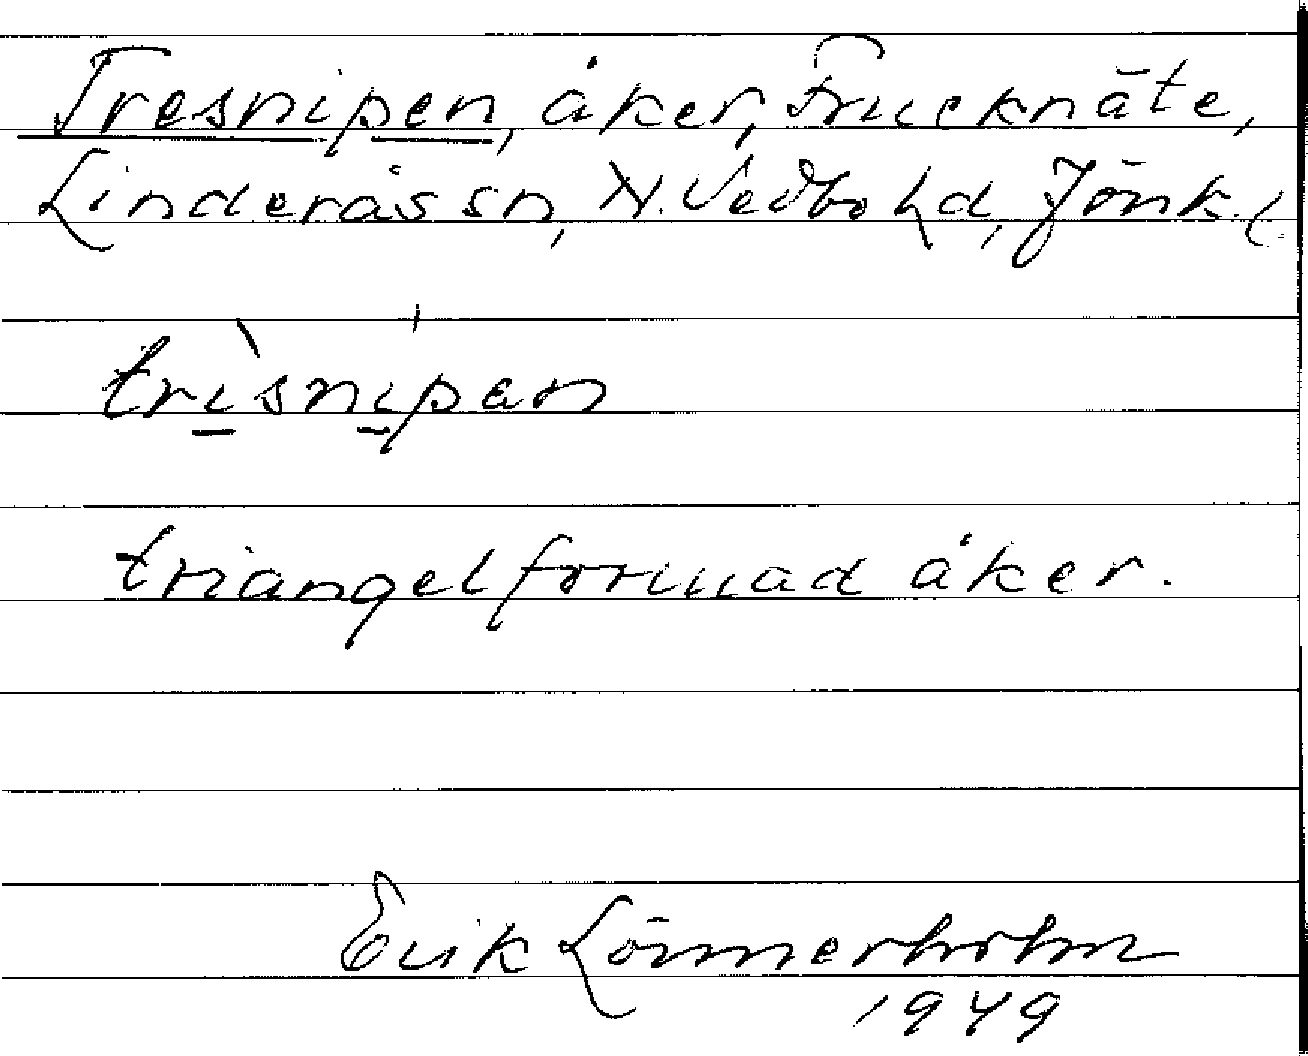 Tresnipen, åker, Frueknäte,
Linderås sn, N. Vedbo hd, Jönk. l.
trìsnípan
triangelformad åker.
Erik Lönnerholm
1949